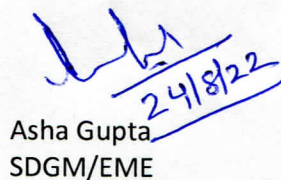 24/8/22
Asha Gupta
SDGM/EME